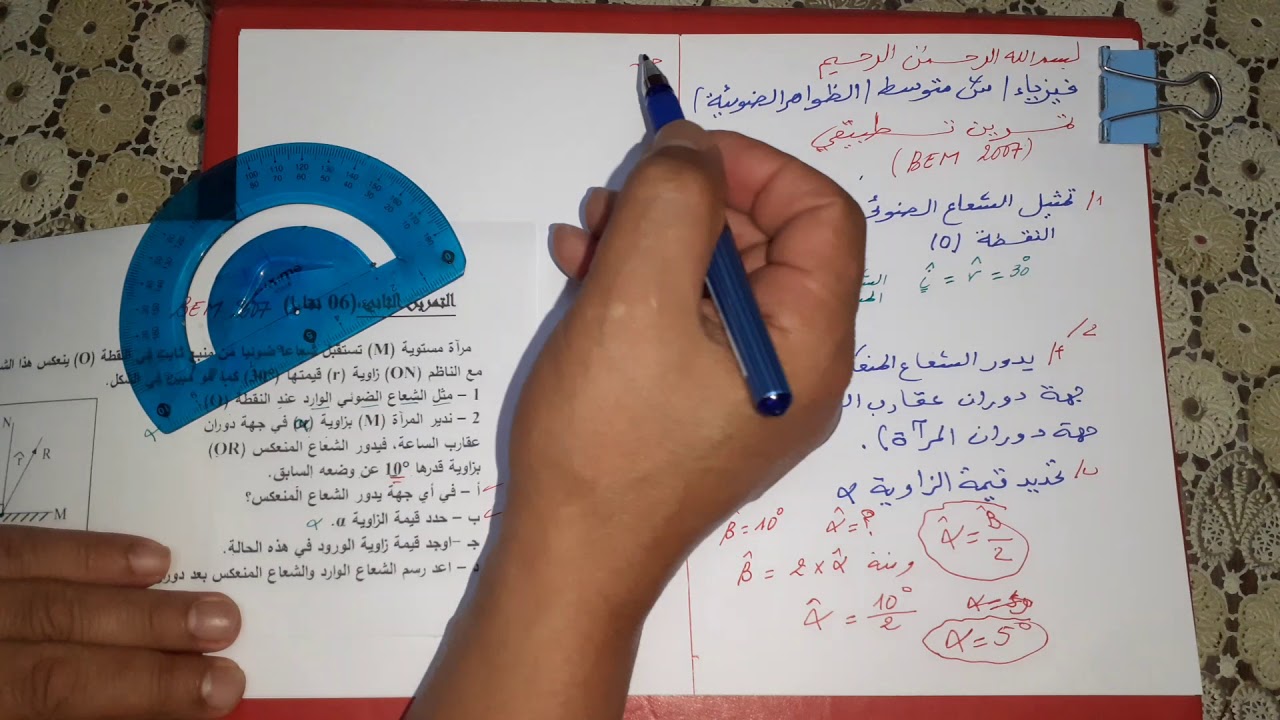 بسم الله الرحمن الرحيم
فيزياء / متوسط / (الظواهر الضوئية)
تمرين تطبيقي
(BEM 2007)
1/ تمثيل الشعاع الضوئي
النقطة (O)
î = r̂ = 30°
2/
أ/ يدور الشعاع المنعكس
جهة دوران عقارب
جهة دوران المرآة).
ب/ تحديد قيمة الزاوية α
β̂ = 10° α̂ = ? α̂ = β̂/2
ومنه β̂ = 2 × α̂
α̂ = 10°/2
α = 5°
التمرين الثاني: (06 نقاط) BEM 2007
مرآة مستوية (M) تستقبل شعاعا ضوئيا من منبع ثابت في النقطة (O) ينعكس هذا
مع الناظم (ON) زاوية (r) قيمتها (30°) كما هو مبين في الشكل.
1 – مثل الشعاع الضوئي الوارد عند النقطة (O)
2 – ندير المرآة (M) بزاوية (α) في جهة دوران
عقارب الساعة، فيدور الشعاع المنعكس (OR)
بزاوية قدرها 10° عن وضعه السابق.
أ – في أي جهة يدور الشعاع المنعكس؟
ب – حدد قيمة الزاوية α. α
جـ – اوجد قيمة زاوية الورود في هذه الحالة.
د – اعد رسم الشعاع الوارد والشعاع المنعكس بعد
N
r̂
R
M